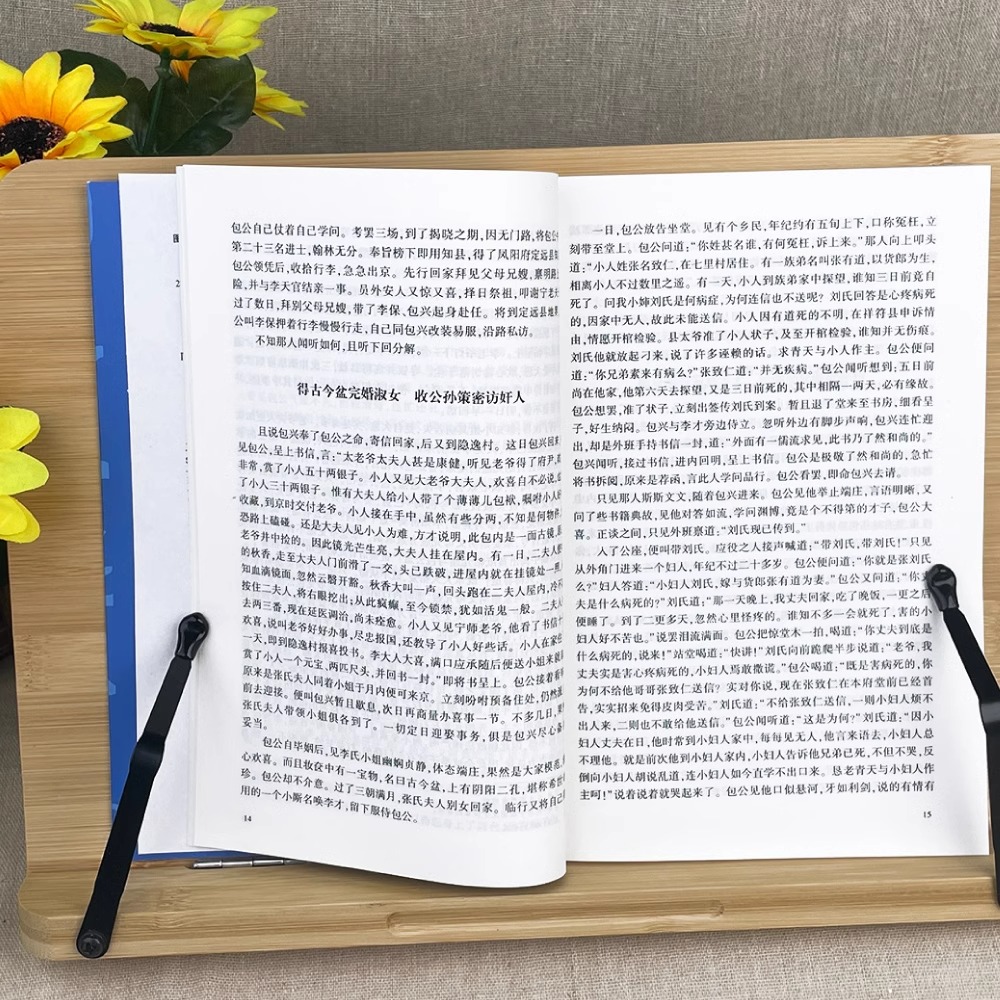 包公自己仗着自己学问。考罢三场，到了揭晓之期，因无门路，将包公
第二十三名进士，翰林无分。奉旨榜下即用知县，得了凤阳府定远县
包公领凭后，收拾行李，急急出京。先行回家拜见父母兄嫂，禀明路
险，并与李天官结亲一事。员外安人又惊又喜，择日祭祖，叩谢宁老
过了数日，拜别父母兄嫂，带了李保、包兴起身赴任。将到定远县地
公叫李保押着行李慢慢行走，自己同包兴改装易服，沿路私访。
不知那人闻听如何，且听下回分解。
得古今盆完婚淑女　收公孙策密访奸人
且说包兴奉了包公之命，寄信回家，后又到隐逸村。这日包兴回来
见包公，呈上书信，言：“太老爷太夫人甚是康健，听见老爷得了府尹，
非常，赏了小人五十两银子。小人又见大老爷大夫人，欢喜自不必说，
了小人三十两银子。惟有大夫人给小人带了个薄薄儿包袱，嘱咐小人
收藏，到京时交付老爷。小人接在手中，虽然有些分两，不知是何物件，
恐路上磕碰。还是大夫人见小人为难，方才说明，此包内是一面古镜，
老爷井中捡的。因此镜光芒生亮，大夫人挂在屋内。有一日，二夫人
的秋香，走至大夫人门前滑了一交，头已跌破，进屋内就在挂镜处一照，
知血满镜面，忽然云翳开豁。秋香大叫一声，回头跑在二夫人屋内，冷不
按住二夫人，将右眼挖出；从此疯癫，至今锁禁，犹如活鬼一般。二夫
去两三番，现在延医调治，尚未痊愈。小人又见宁师老爷，他看了书信
欢喜，说叫老爷好好办事，尽忠报国，还教导了小人好些话。小人在家
一天，即到隐逸村报喜投书。李大人大喜，满口应承随后便送小姐来就
赏了小人一个元宝、两匹尺头，并回书一封。”即将书呈上。包公接着
原来是张氏夫人同着小姐于月内便可来京。立刻吩咐预备住处，仍然
前去迎接。便叫包兴暂且歇息，次日再商量办喜事一节。不多几日，
张氏夫人带领小姐俱各到了。一切定日迎娶事务，俱是包兴尽心备
妥当。
包公自毕姻后，见李氏小姐幽娴贞静，体态端庄，果然是大家模范，
心欢喜。而且妆奁中有一宝物，名曰古今盆，上有阴阳二孔，堪称希世
珍。包公却不介意。过了三朝满月，张氏夫人别女回家。临行又将自己
用的一个小厮名唤李才，留下服侍包公。
14
一日，包公放告坐堂。见有个乡民，年纪约有五旬上下，口称冤枉，立
刻带至堂上。包公问道：“你姓甚名谁，有何冤枉，诉上来。”那人向上叩头
道：“小人姓张名致仁，在七里村居住。有一族弟名叫张有道，以货郎为生，
相离小人不过数里之遥。有一天，小人到族弟家中探望，谁知三日前竟自
死了。问我小婶刘氏是何病症，为何连信也不送呢？刘氏回答是心疼病死
的，因家中无人，故此未能送信。小人因有道死的不明，在祥符县申诉情
由，情愿开棺检验。县太爷准了小人状子，及至开棺检验，谁知并无伤痕。
刘氏他就放起刁来，说了许多诬赖的话。求青天与小人作主。包公便问
道：“你兄弟素来有病么？”张致仁道：“并无疾病。”包公闻听想到：五日前
尚在他家，他第六天去探望，又是三日前死的，其中相隔一两天，必有缘故。
包公想罢，准了状子，立刻出签传刘氏到案。暂且退了堂来至书房，细看呈
子，好生纳闷。包兴与李才旁边侍立。忽听外边有脚步声响，包兴连忙迎
出，却是外班手持书信一封，道：“外面有一儒流求见，此书乃了然和尚的。”
包兴闻听，接过书信，进内回明，呈上书信。包公是极敬了然和尚的，急忙
将书拆阅，原来是荐函，言此人学问品行。包公看罢，即命包兴去请。
只见那人斯斯文文，随着包兴进来。包公见他举止端庄，言语明晰，又
问了些书籍典故，见他对答如流，学问渊博，竟是个不得第的才子，包公大
喜。正谈之间，只见外班禀道：“刘氏现已传到。”
入了公座，便叫带刘氏。应役之人接声喊道：“带刘氏，带刘氏！”只见
从外角门进来一个妇人，年纪不过二十多岁。包公便问道：“你就是张刘氏
么？”妇人答道：“小妇人刘氏，嫁与货郎张有道为妻。”包公又问道：“你丈
夫是什么病死的？”刘氏道：“那一天晚上，我丈夫回家，吃了晚饭，一更之后
便睡了。到了二更多天，忽然心里怪疼的。谁知不多一会就死了，害的小
妇人好不苦也。”说罢泪流满面。包公把惊堂木一拍，喝道：“你丈夫到底是
什么病死的，说来！”站堂喝道：“快讲！”刘氏向前跪爬半步说道：“老爷，我
丈夫实是害心疼病死的，小妇人焉敢撒谎。”包公喝道：“既是害病死的，你
为何不给他哥哥张致仁送信？实对你说，现在张致仁在本府堂前已经首
告，实实招来免得皮肉受苦。”刘氏道：“不给张致仁送信，一则小妇人烦不
出人来，二则也不敢给他送信。”包公闻听道：“这是为何？”刘氏道：“因小
妇人丈夫在日，他时常到小妇人家中，每每见无人，他言来语去，小妇人总
不理他。就是前次他到小妇人家内，小妇人告诉他兄弟已死，不但不哭，反
倒向小妇人胡说乱道，连小妇人如今直学不出口来。恳老青天与小妇人作
主呵！”说着说着就哭起来了。包公见他口似悬河，牙如利剑，说的有情有
15